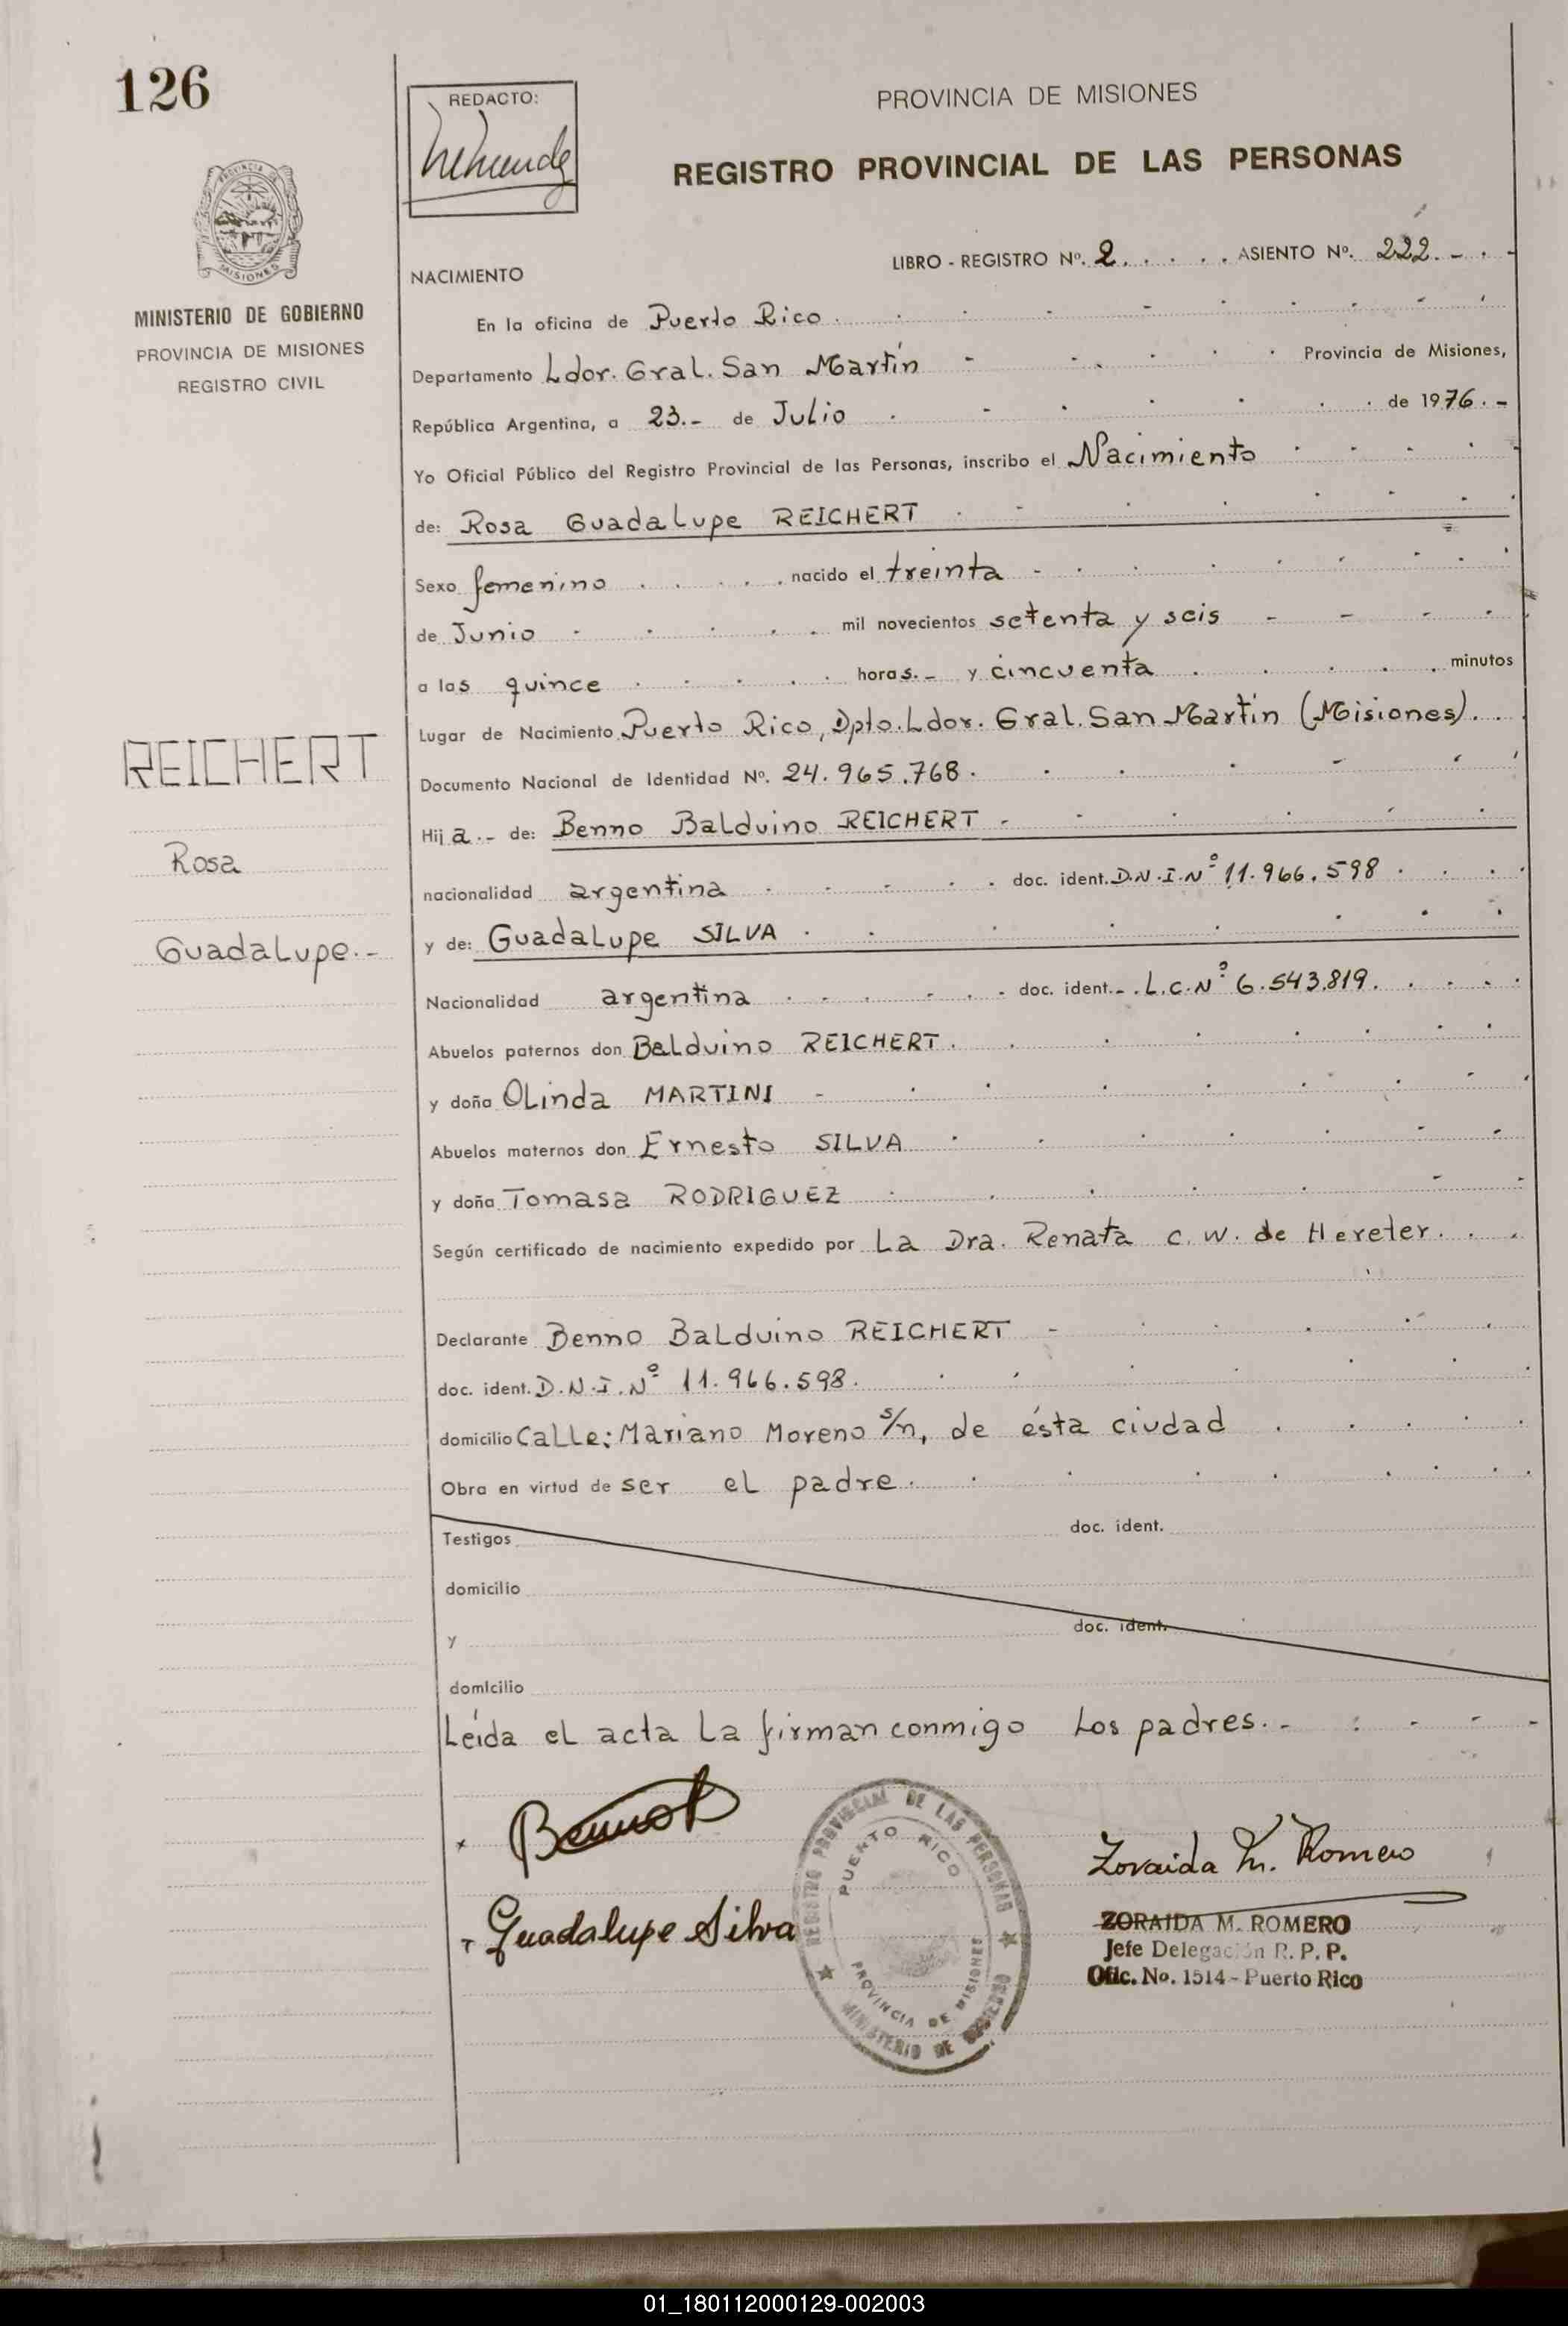 126
REDACTO:
PROVINCIA DE MISIONES
REGISTRO PROVINCIAL DE LAS PERSONAS
PROVINCIA DE
MISIONES
MINISTERIO DE GOBIERNO
PROVINCIA DE MISIONES
REGISTRO CIVIL
LIBRO - REGISTRO Nº. 2 . . . . . ASIENTO Nº. 222.-
NACIMIENTO
En la oficina de Puerto Rico
Departamento Ldor. Gral. San Martín - Provincia de Misiones,
República Argentina, a 23.- de Julio de 1976.-
Yo Oficial Público del Registro Provincial de las Personas, inscribo el Nacimiento
de: Rosa Guadalupe REICHERT
Sexo femenino nacido el treinta
de Junio mil novecientos setenta y seis
a las quince horas.- y cincuenta minutos
Lugar de Nacimiento Puerto Rico, Dpto. Ldor. Gral. San Martín (Misiones).
Documento Nacional de Identidad Nº. 24.965.768.
REICHERT
Rosa
Guadalupe.-
Hija.- de: Benno Balduino REICHERT -
nacionalidad argentina doc. ident. D.N.I.Nº 11.966.598
y de: Guadalupe SILVA
Nacionalidad argentina doc. ident.- L.C.Nº 6.543.819.
Abuelos paternos don Balduino REICHERT.
y doña Olinda MARTINI -
Abuelos maternos don Ernesto SILVA
y doña Tomasa RODRIGUEZ
Según certificado de nacimiento expedido por La Dra. Renata C. W. de Hereter.
Declarante Benno Balduino REICHERT -
doc. ident. D.N.I.Nº 11.966.598.
domicilio Calle: Mariano Moreno s/n, de ésta ciudad
Obra en virtud de ser el padre.
Testigos doc. ident.
domicilio
y doc. ident.
domicilio
Leída el acta la firman conmigo los padres.-
Guadalupe Silva
REGISTRO PROVINCIAL DE LAS PERSONAS
PUERTO RICO
PROVINCIA DE MISIONES
MINISTERIO DE GOBIERNO
Zoraida M. Romero
ZORAIDA M. ROMERO
Jefe Delegación R. P. P.
Ofic. No. 1514 - Puerto Rico
01_180112000129-002003